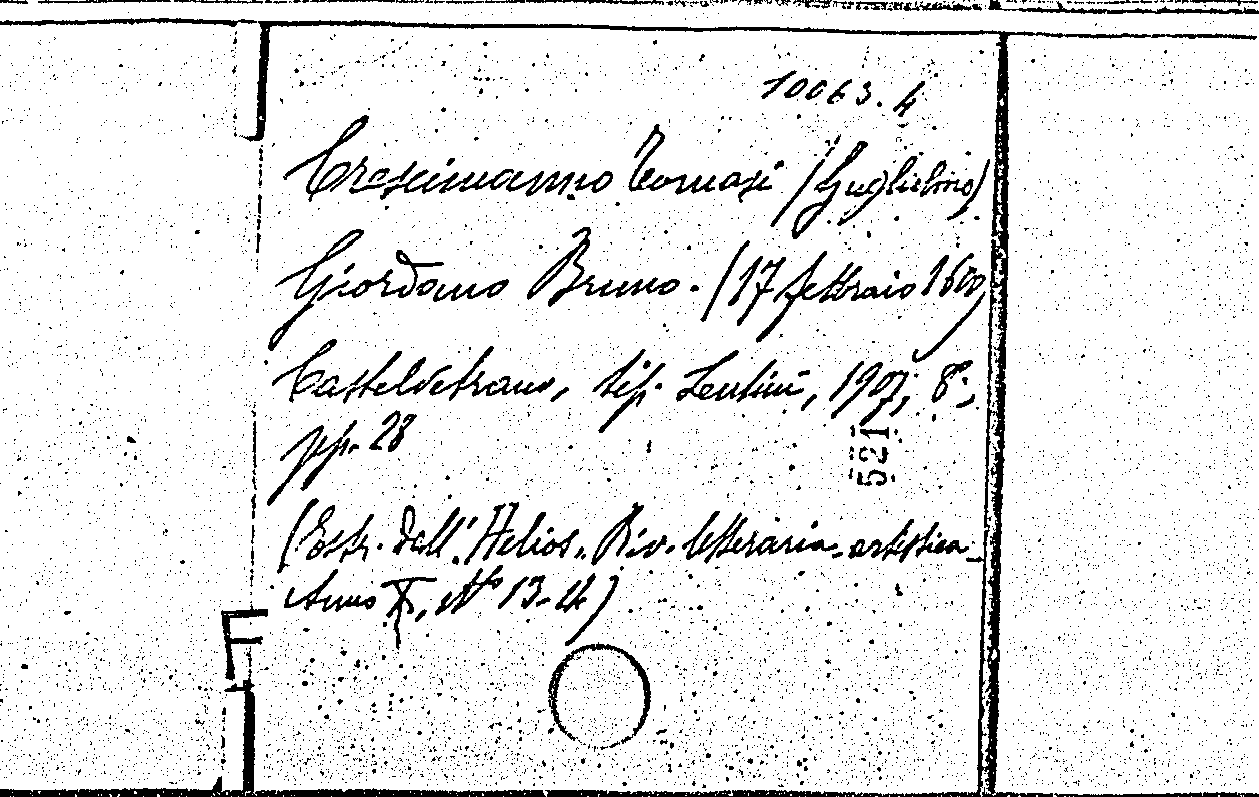 10063.4
Crescimanno Tomasi (Guglielmo)
Giordano Bruno. (17 febbraio 1600)
Castelvetrano, tip. Lentini, 1907, 8º,
pp. 28
521
(Estr. dall' "Helios". Riv. letteraria-artistica-
Anno X, Nº 13-14)